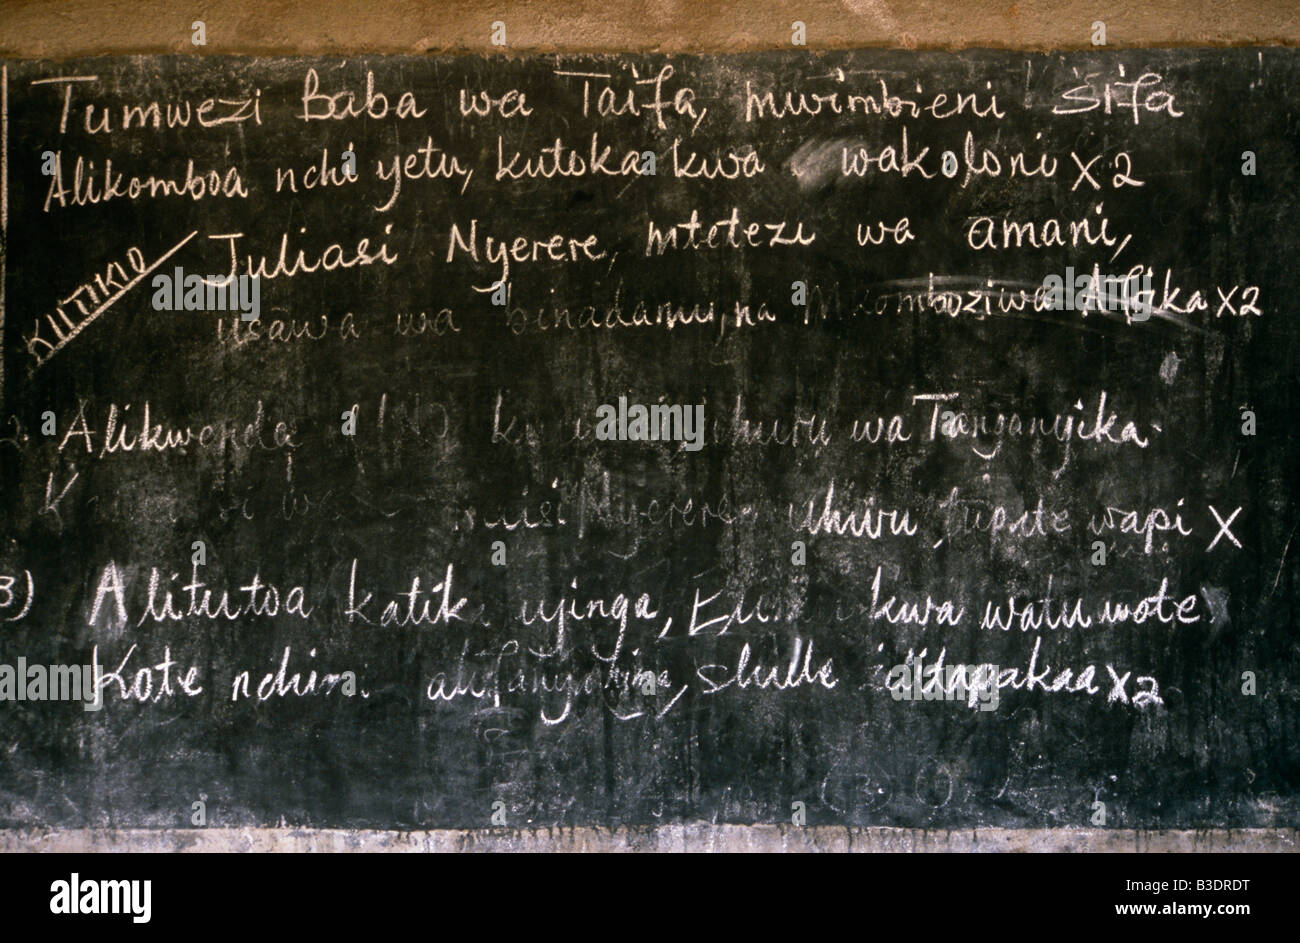 Tumwezi Baba wa Taifa, mwimbieni sifa
Alikomboa nchi yetu, kutoka kwa wakoloni x2
KIITIKIO
Juliasi Nyerere, mtetezi wa amani,
usawa wa binadamu, na Mkomboziwa Afrika x2
2. Alikwenda UNO uhuru wa Tanganyika.
Nyerere uhuru, tupate wapi X
3) Alitutoa katika ujinga, kwa watu wote
Kote nchini alifanya shule zilitapakaa x2
alamy
Image ID: B3DRDT
www.alamy.com